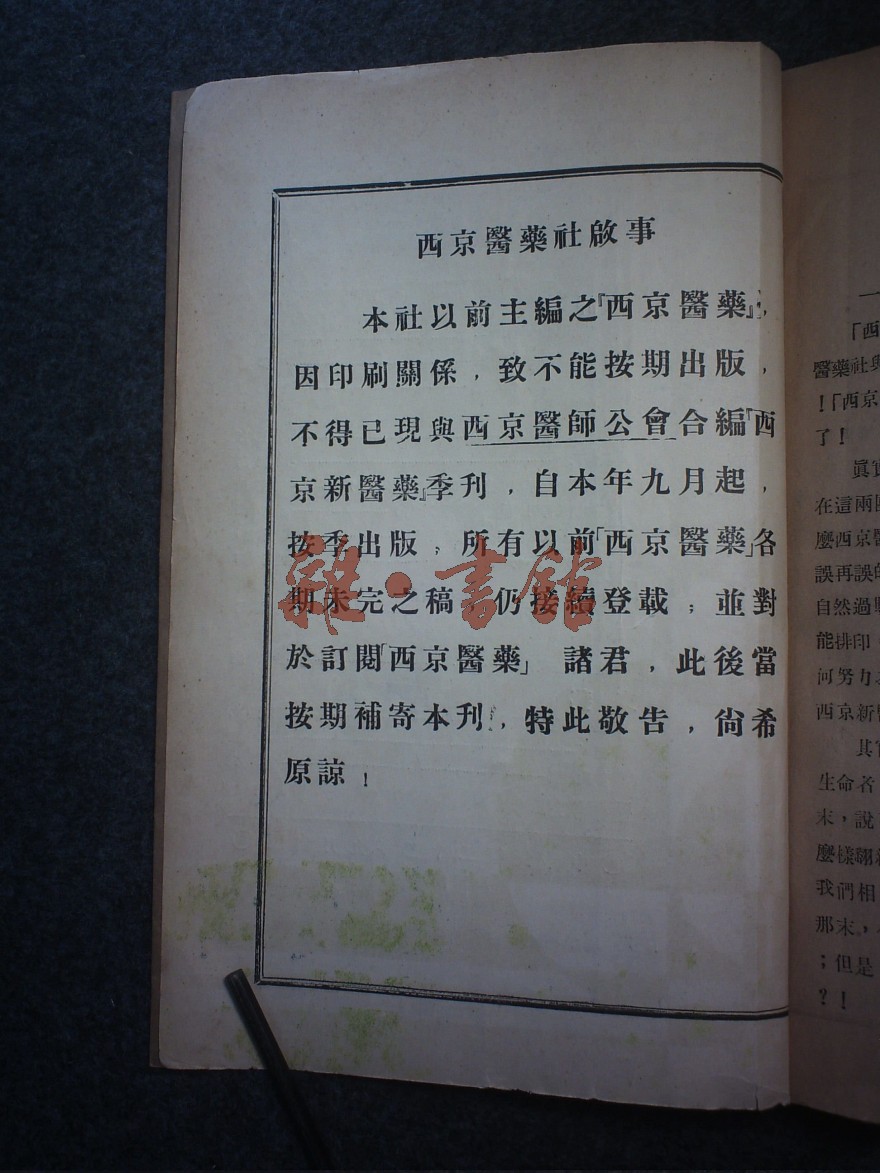 西京醫藥社啟事
本社以前主編之『西京醫藥』，
因印刷關係，致不能按期出版，
不得已現與西京醫師公會合編『西
京新醫藥』季刊，自本年九月起，
按季出版，所有以前「西京醫藥」各
期未完之稿，仍接續登載；並對
於訂閱「西京醫藥」諸君，此後當
按期補寄本刊，特此敬告，尙希
原諒！
雜·書館
一
「西
醫藥社與
！「西京
了！
眞
在這兩
麼西京醫
誤再誤的
自然過
能排印
何努力
西京新醫
其
生命者
末，說
麼樣翻
我們相
那末，
；但是
？！